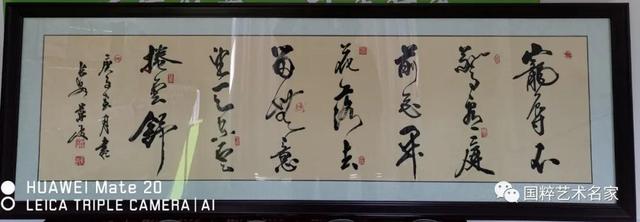 寵辱不
驚看庭
前花開
花落去
留無意
望天上雲
捲雲舒
庚子 月書
HUAWEI Mate 20
LEICA TRIPLE CAMERA | AI
国粹艺术名家